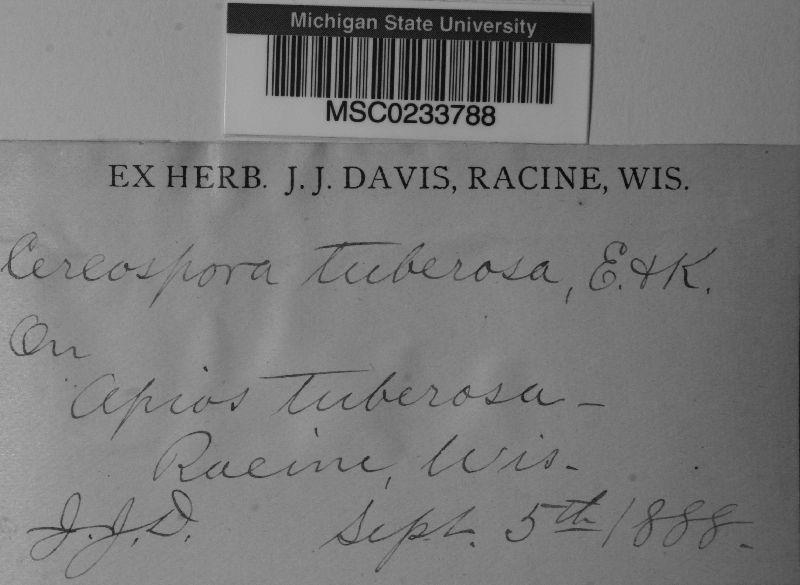 Michigan State University
MSC0233788
EX HERB. J. J. DAVIS, RACINE, WIS.
Cercospora tuberosa, E. & K.
On
Apios tuberosa -
Racine, Wis.
J. J. D. Sept. 5th 1888.